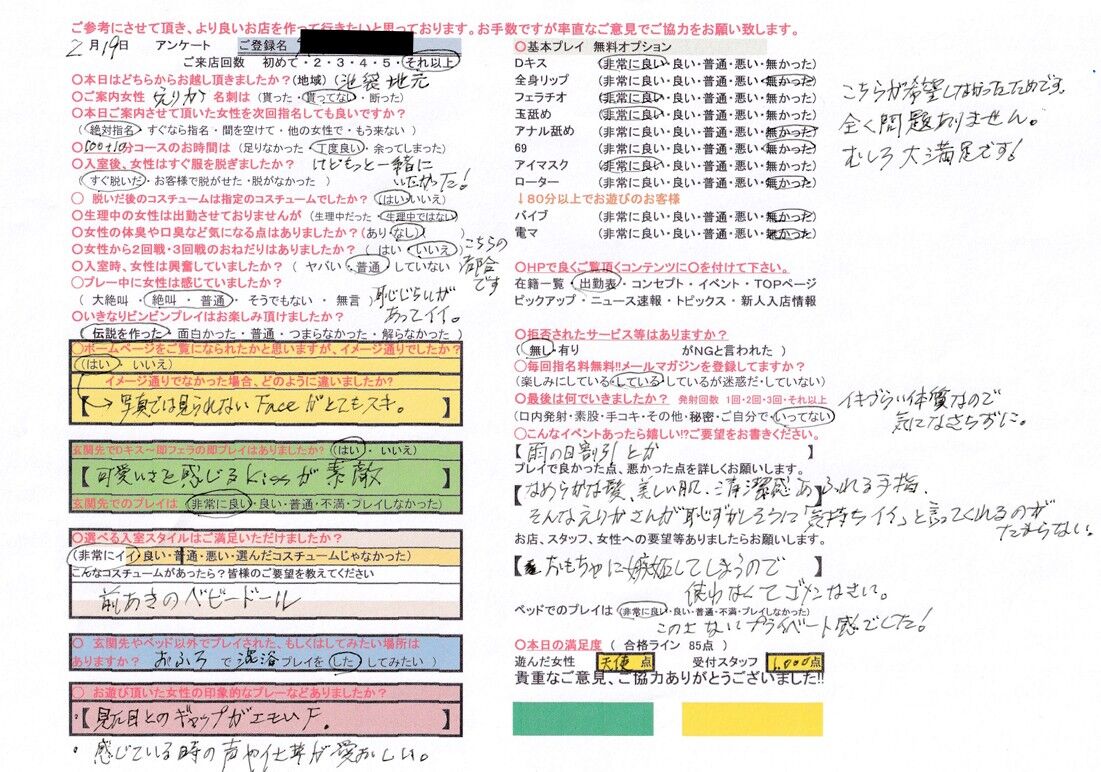 ご参考にさせて頂き、より良いお店を作って行きたいと思っております。お手数ですが率直なご意見でご協力をお願い致します。
2月19日 アンケート ご登録名
ご来店回数 初めて・2・3・4・5・それ以上
〇本日はどちらからお越し頂きましたか?(地域)(池袋地元
〇ご案内女性 えりか 名刺は (貰った・貰ってない・断った)
〇本日ご案内させて頂いた女性を次回指名しても良いですか?
(絶対指名・すぐなら指名・間を空けて・他の女性で・もう来ない)
〇100+10分コースのお時間は (足りなかった・丁度良い・余ってしまった)
〇入室後、女性はすぐ服を脱ぎましたか? けどもっと一緒に
(すぐ脱いだ・お客様で脱がせた・脱がなかった) いたかった!
〇 脱いだ後のコスチュームは指定のコスチュームでしたか? (はい・いいえ)
〇生理中の女性は出勤させておりませんが (生理中だった・生理中ではない)
〇女性の体臭や口臭など気になる点はありましたか?(あり・なし)(
〇女性から2回戦・3回戦のおねだりはありましたか? ( はい・いいえ ) こちらの
都合
です
〇入室時、女性は興奮していましたか? ( ヤバい・普通・していない )
〇プレー中に女性は感じていましたか? 恥じらいが
( 大絶叫 ・ 絶叫 ・ 普通 ・ そうでもない ・ 無言 ) あってイイ。
〇いきなりビンビンプレイはお楽しみ頂けましたか?
(伝説を作った・面白かった・普通・つまらなかった・解らなかった )
〇ホームページをご覧になられたかと思いますが、イメージ通りでしたか?
(はい ・ いいえ)
イメージ通りでなかった場合、どのように違いましたか?
【→写真では見られないFaceがとてもスキ。】
玄関先でDキス~即フェラの即プレイはありましたか? (はい ・ いいえ)
【可愛いさを感じるkissが素敵】
玄関先でのプレイは (非常に良い・良い・普通・不満・プレイしなかった)
〇選べる入室スタイルはご満足いただけましたか?
(非常にイイ・良い・普通・悪い・選んだコスチュームじゃなかった)
こんなコスチュームがあったら?皆様のご要望を教えてください
前あきのベビードール
〇 玄関先やベッド以外でプレイされた、もしくはしてみたい場所は
ありますか? おふろ で 混浴 プレイを ( した ・ してみたい )
〇 お遊び頂いた女性の印象的なプレーなどありましたか?
・【見た目とのギャップがエモいF。】
・感じている時の声や仕草が愛おしい。
〇基本プレイ 無料オプション
Dキス (非常に良い・良い・普通・悪い・無かった)
全身リップ (非常に良い・良い・普通・悪い・無かった)
フェラチオ (非常に良い・良い・普通・悪い・無かった)
玉舐め (非常に良い・良い・普通・悪い・無かった)
アナル舐め (非常に良い・良い・普通・悪い・無かった)
69 (非常に良い・良い・普通・悪い・無かった)
アイマスク (非常に良い・良い・普通・悪い・無かった)
ローター (非常に良い・良い・普通・悪い・無かった)
こちらが希望しなかったためです。
全く問題ありません。
むしろ大満足です!
↓80分以上でお遊びのお客様
バイブ (非常に良い・良い・普通・悪い・無かった)
電マ (非常に良い・良い・普通・悪い・無かった)
〇HPで良くご覧頂くコンテンツに〇を付けて下さい。
在籍一覧 ・ 出勤表 ・ コンセプト ・ イベント ・ TOPページ
ピックアップ ・ ニュース速報 ・ トピックス ・ 新人入店情報
〇拒否されたサービス等はありますか?
( 無し・有り がNGと言われた )
〇毎回指名料無料!!メールマガジンを登録してますか?
(楽しみにしている・している・しているが迷惑だ・していない)
〇最後は何でいきましたか? 発射回数 1回・2回・3回・それ以上
(口内発射・素股・手コキ・その他・秘密・ご自分で・いってない) イキづらい体質なので
気になさらずに。
〇こんなイベントあったら嬉しい!?ご要望をお書きください。
【雨の日割引とか】
プレイで良かった点、悪かった点を詳しくお願いします。
【なめらかな髪、美しい肌、清潔感あふれる手指、】
そんなえりかさんが恥ずかしそうに「気持ちイイ」と言ってくれるのが
たまらない。
お店、スタッフ、女性への要望等ありましたらお願いします。
【おもちゃに嫉妬してしまうので】
使わなくてゴメンなさい。
ベッドでのプレイは (非常に良い・良い・普通・不満・プレイしなかった)
この上ないプライベート感でした!
〇本日の満足度 ( 合格ライン 85点 )
遊んだ女性 天使 点 受付スタッフ 1,000点
貴重なご意見、ご協力ありがとうございました!!